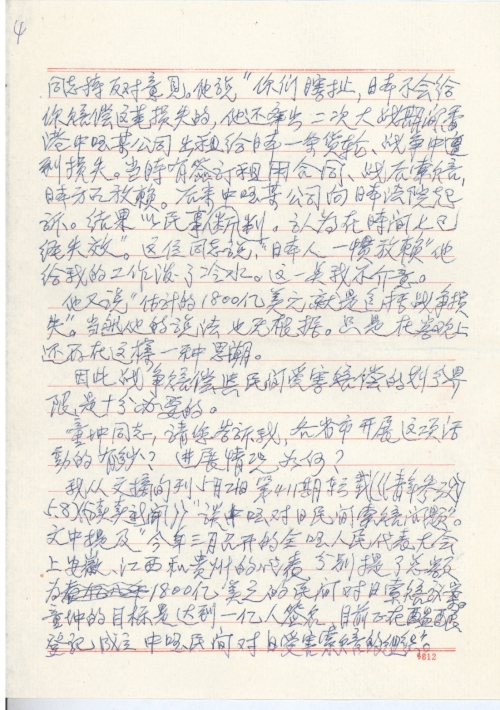 4
同志持反对意见。他说"你们瞎扯,日本不会给
你赔偿这笔损失的,他还举出二次大战期间香
港中国某公司出租给日本一条货轮、战争中遭
到损失。当時有签订租用合同、战后索赔,
日本方面放赖。后来中国某公司向日本法院起
诉。结果以民事侵判。认为在時间上已
经失效"。这位同志说,"日本人一惯放赖"他
给我的工作泼了冷水。这一类我不介意。
他又说"估计的1800亿美元就是直接战争损
失"。当然他的说法也无根据。只是在客观上
还存在这样一种思潮。
因此战争赔偿与民间受害赔偿的划分界
限是十分必要的。
童坤同志,请您告诉我,各省市开展这项活
动的有多少?进展情况如何?
我从文摘周刊5月2日第411期转载《《青年参考》
5.8》《读卖新闻》》"谈中国对日民间索赔问题。
文中提及"今年三月召开的全国人民代表大会
上安徽、江西和贵州的代表分别提了总数
为1800亿美元的民间对日索赔议案
童坤的目标是达到一亿人签名,目前正在酝酿
登记成立中国民间对日受害索赔的组织"。
4612